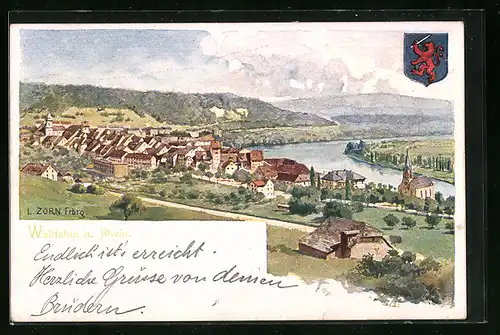 L. ZORN Frbrg
Waldshut a. Rhein.
Endlich ist's erreicht.
Herzliche Grüsse von deinen
Brüdern.